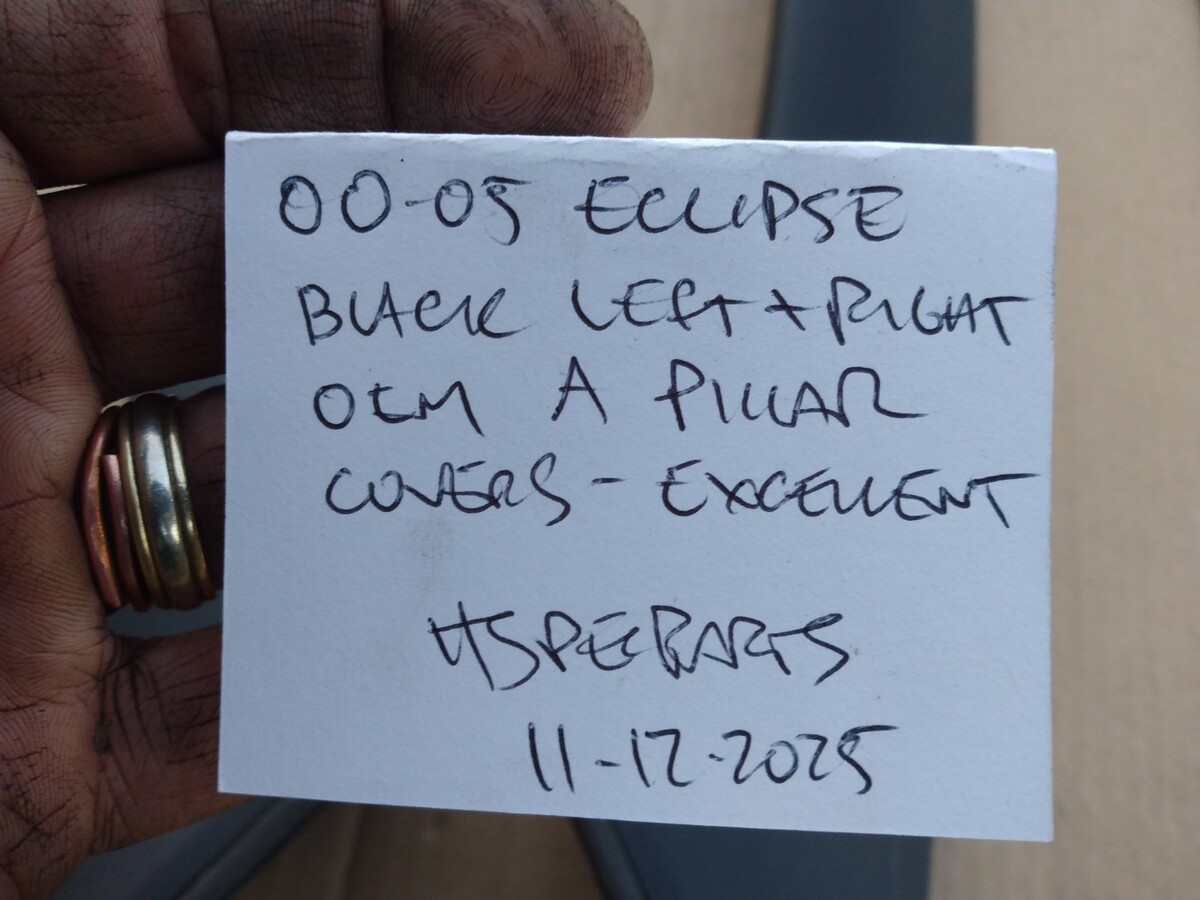 00-05 ECLIPSE
BLACK LEFT + RIGHT
OEM A PILLAR
COVERS - EXCELLENT
4SPECPARTS
11-12-2025